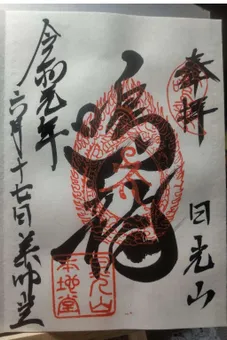 奉拝
日光山
鳴龍
令和元年
六月十七日
薬師堂
日光山
本地堂